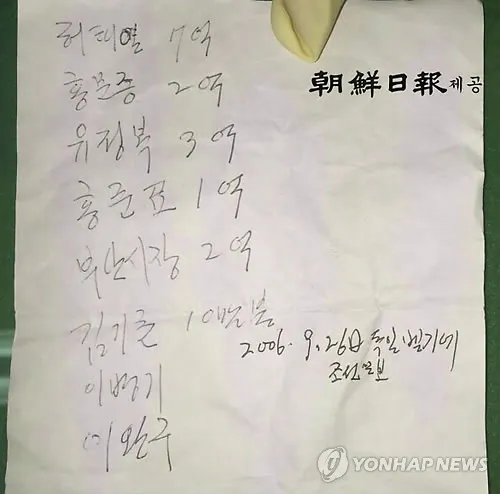 朝鮮日報 제공
허태열 7억
홍문종 2억
유정복 3억
홍준표 1억
부산시장 2억
김기춘 10만불
2006. 9. 26日 독일 벨기에
조선일보
이병기
이완구
YONHAP NEWS